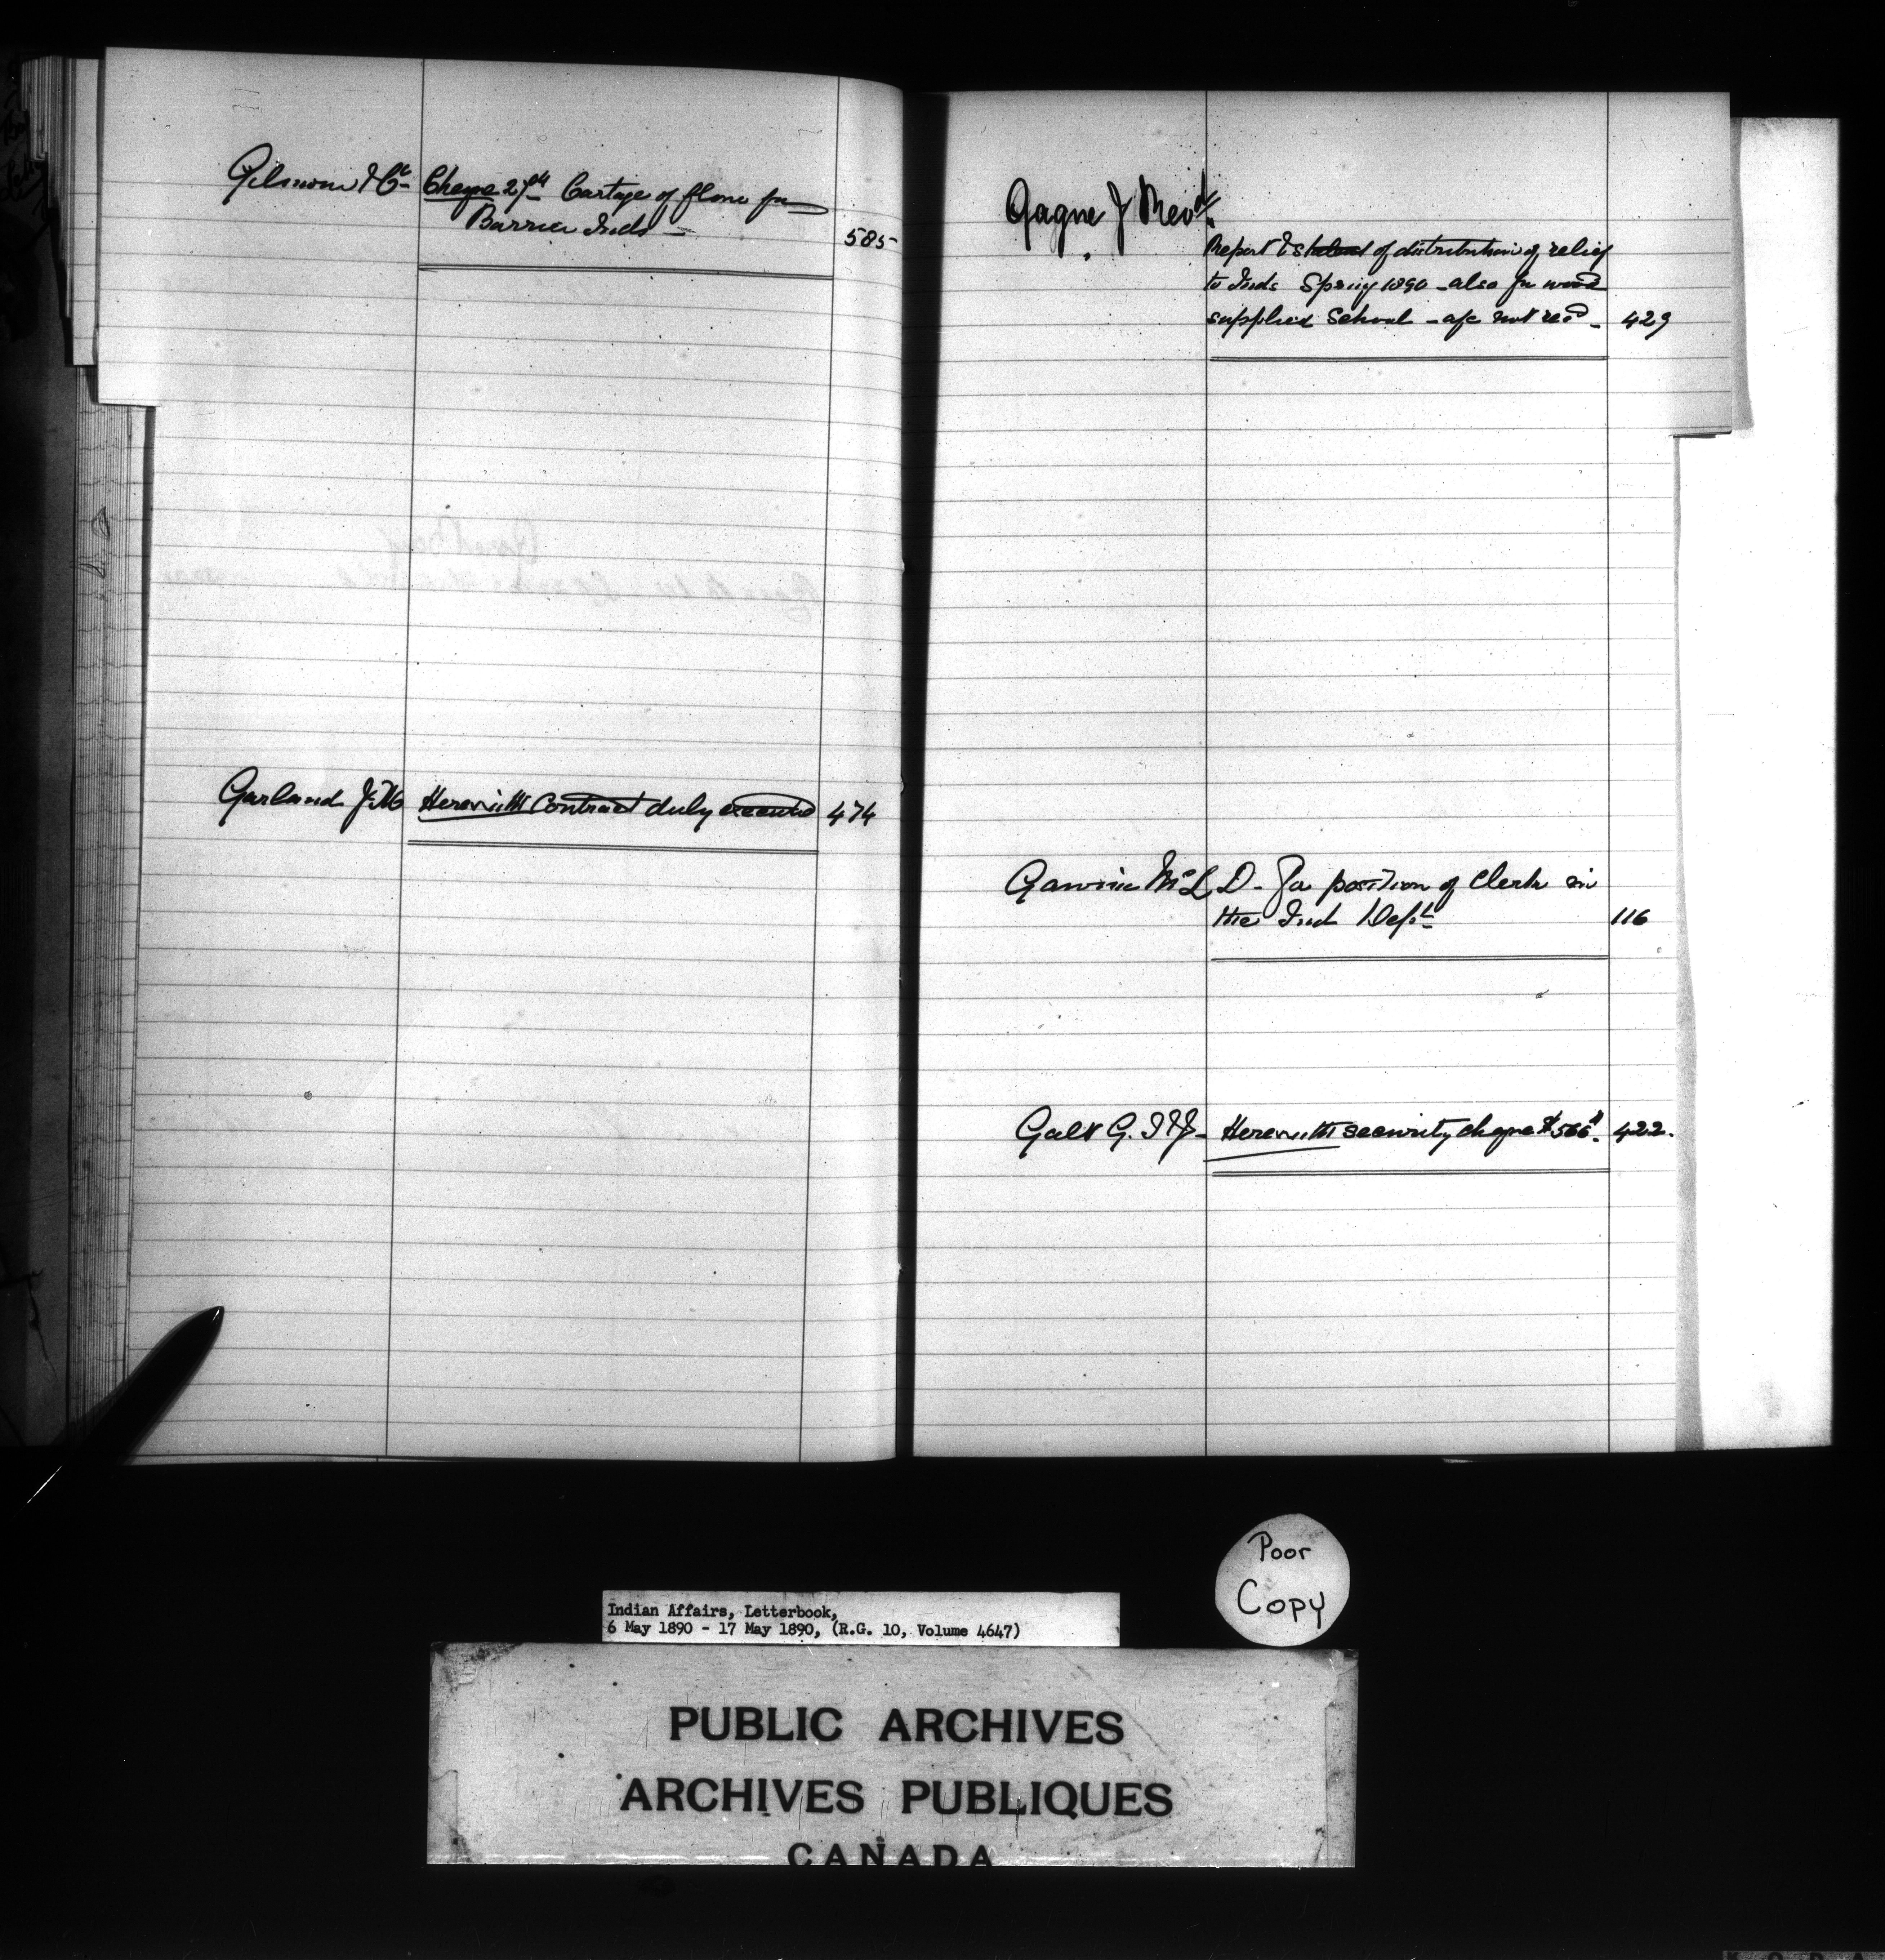 Gilmour & Co Cheque 27 84 Cartage of flour for
Barrier Inds - 585
Garland J.M Herewith Contract duly executed 474
Gagne J Revd.
Report & statemt of distribution of relief
to Inds Spring 1890 - also for wood
supplied School - a/c not recd - 429
McL D. - For position of Clerk in
the Ind Dept 116
Galt G. F & J - Herewith security cheque $566. 422.
Poor
Copy
Indian Affairs, Letterbook,
6 May 1890 - 17 May 1890, (R.G. 10, Volume 4647)
PUBLIC ARCHIVES
ARCHIVES PUBLIQUES
CANADA